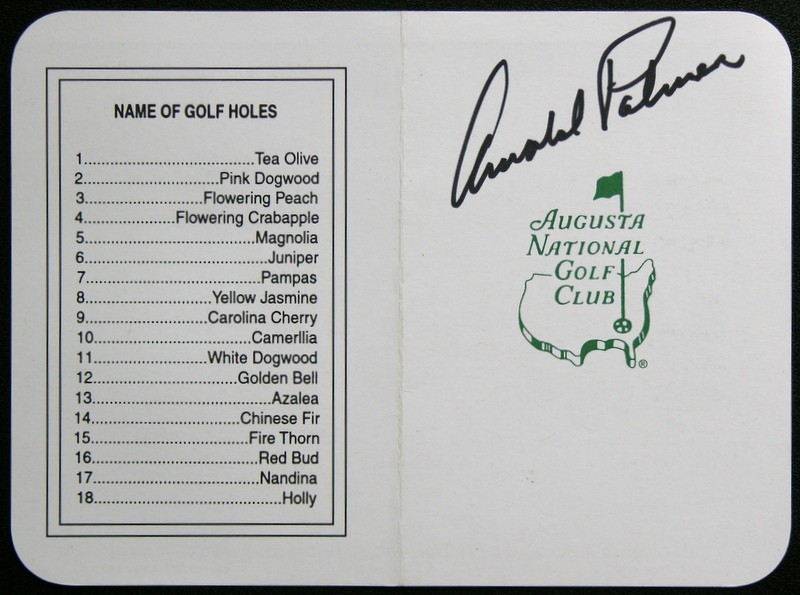 NAME OF GOLF HOLES
1..........................................Tea Olive
2..................................Pink Dogwood
3.............................Flowering Peach
4......................Flowering Crabapple
5..........................................Magnolia
6.............................................Juniper
7...........................................Pampas
8...............................Yellow Jasmine
9..............................Carolina Cherry
10.......................................Camerllia
11............................White Dogwood
12...................................Golden Bell
13............................................Azalea
14....................................Chinese Fir
15......................................Fire Thorn
16........................................Red Bud
17.........................................Nandina
18..............................................Holly
Arnold Palmer
AUGUSTA
NATIONAL
GOLF
CLUB
®